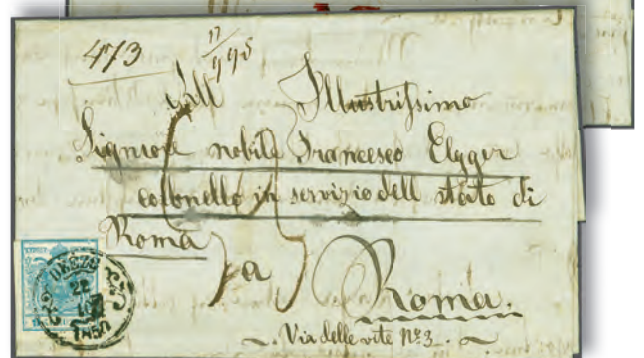 473
17/995
All Illustrissimo
Signiore nobile Francesco Elgger
collonello in servizio dell stato di
Roma
a
Roma.
Via delle vite Nº 3.